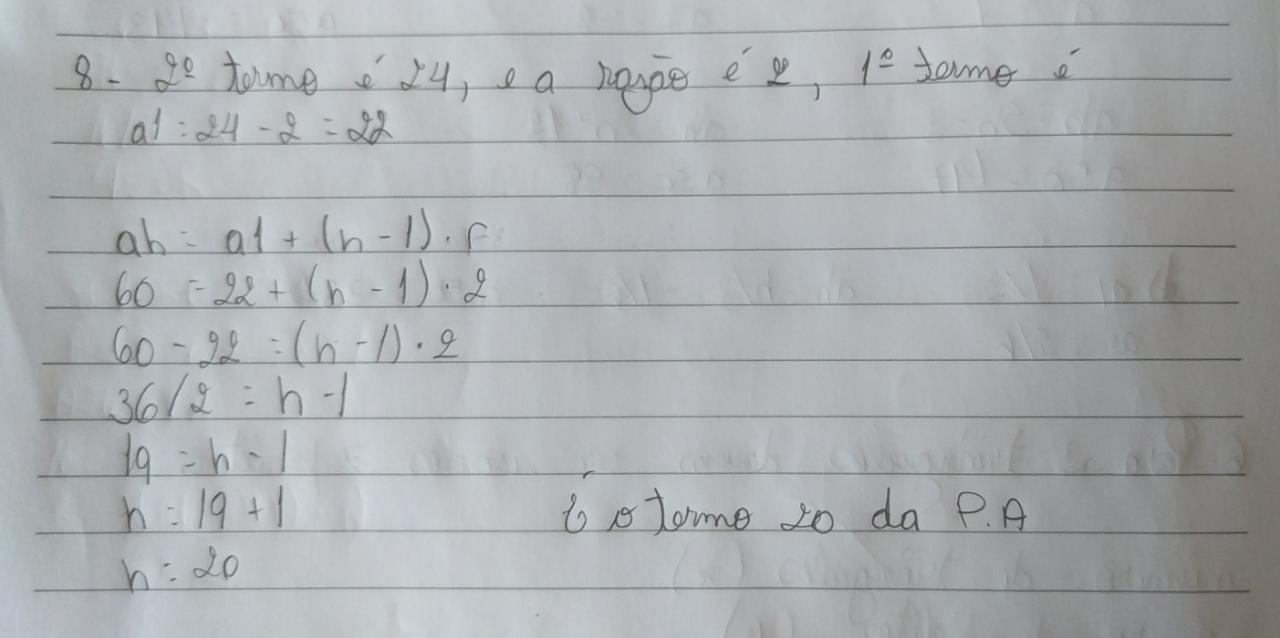 8 - 2º termo é 24, e a razão é 2, 1º termo é
a1 = 24 - 2 = 22
an = a1 + (n - 1) . r
60 = 22 + (n - 1) . 2
60 - 22 = (n - 1) . 2
36/2 = n - 1
19 = n - 1
n = 19 + 1 É o termo 20 da P.A
n = 20